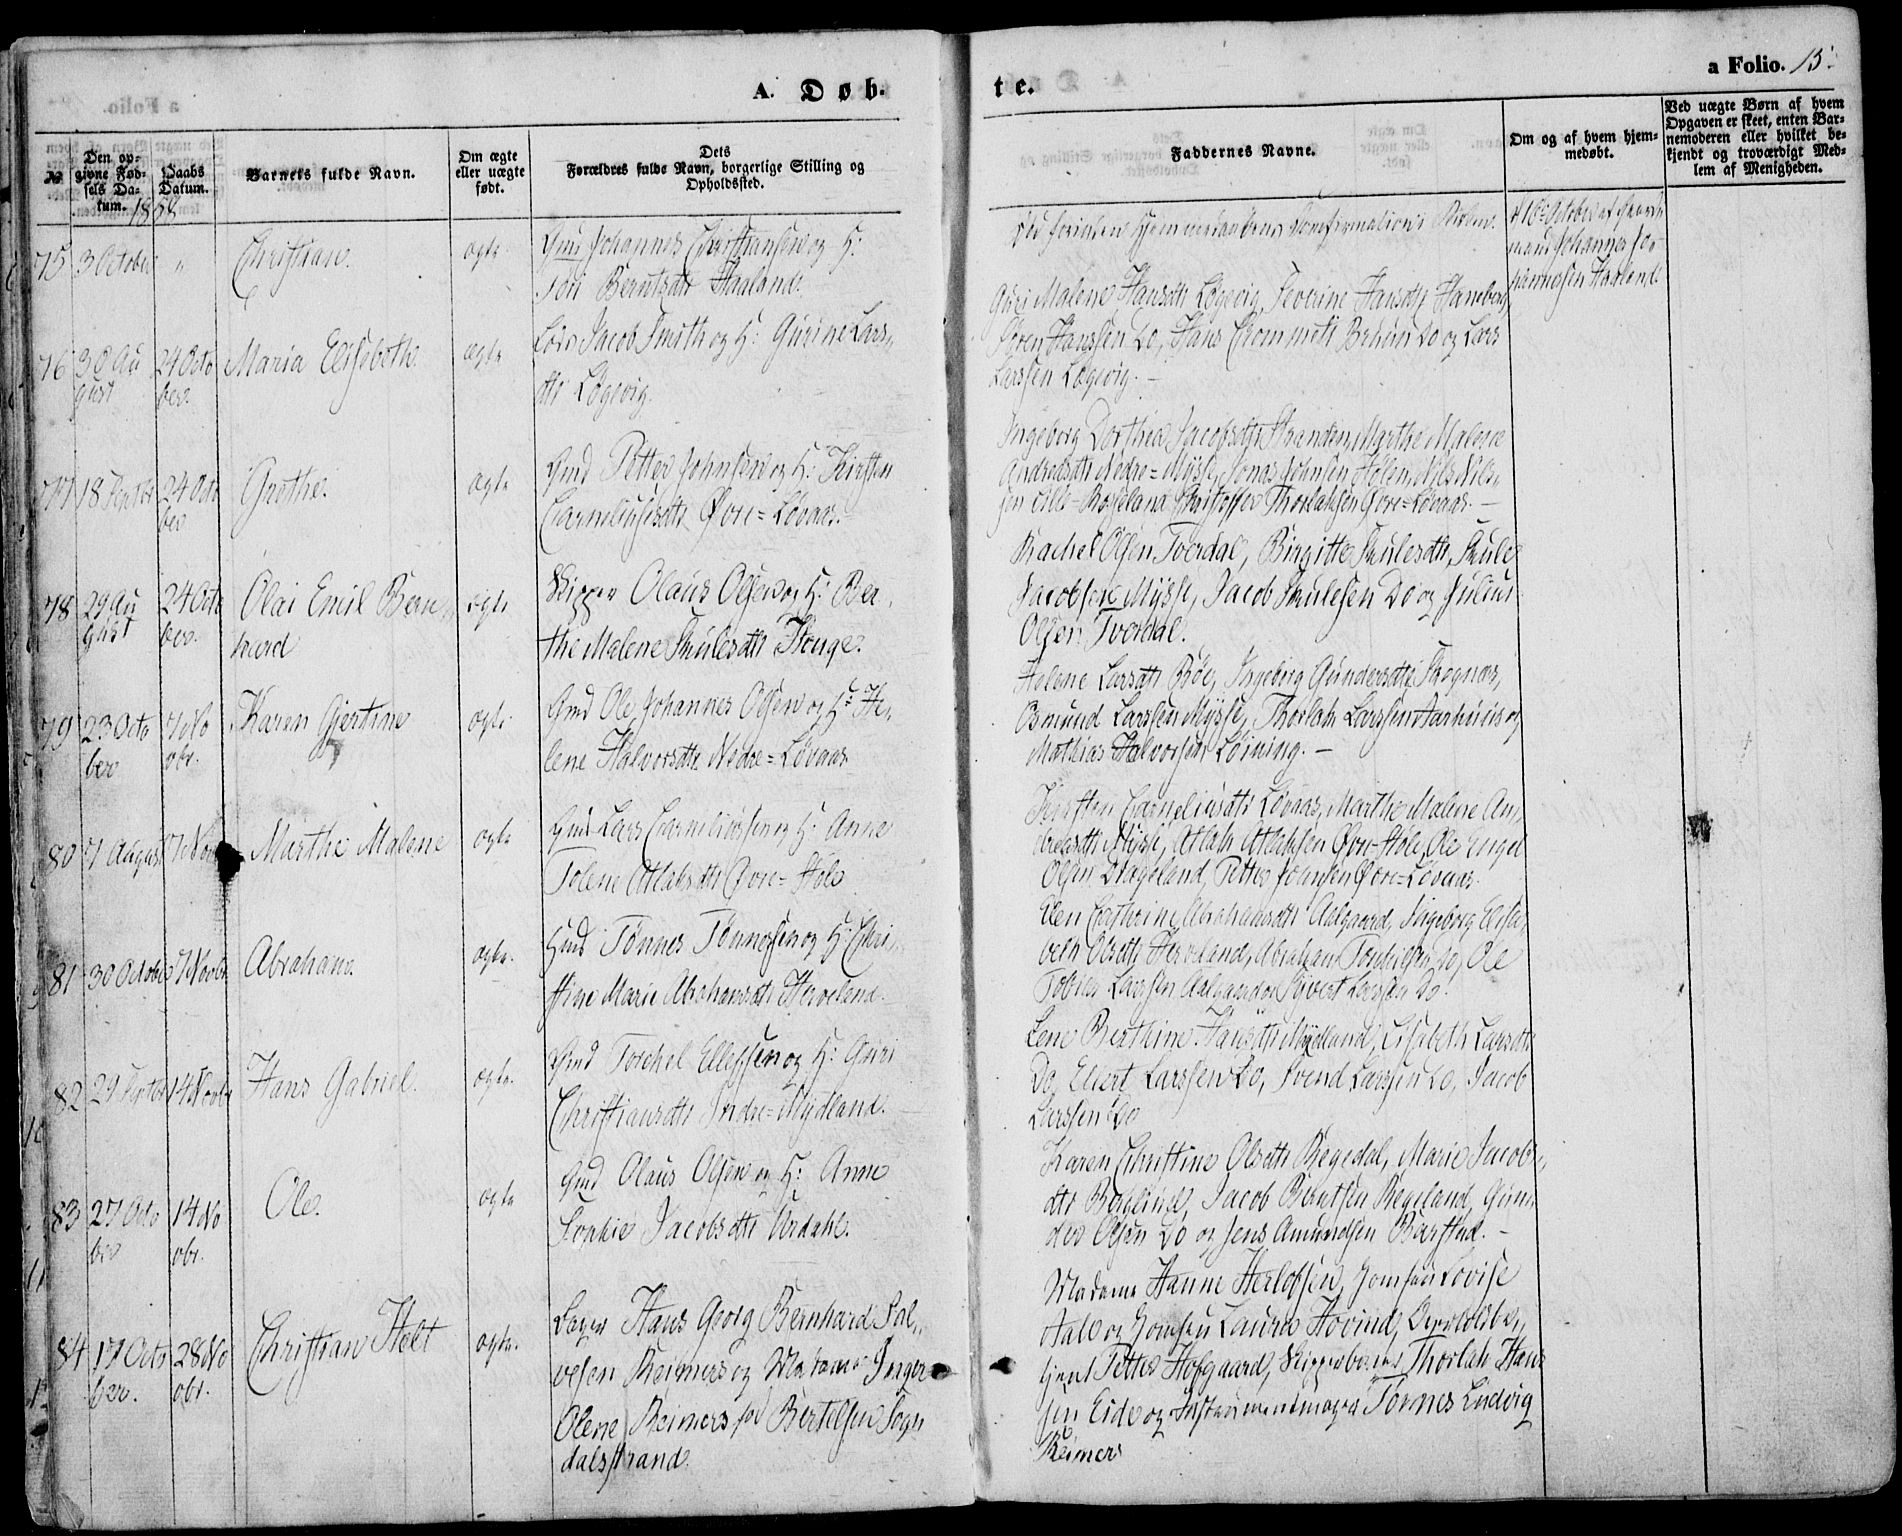 A. Døb-
te.
a Folio. 15.
№
Den op-
givne Fød-
sels Da-
tum. 1858
Daabs
Datum.
Barnets fulde Navn.
Om ægte
eller uægte
født.
Dets
Forældres fulde Navn, borgerlige Stilling og
Opholdssted.
Faddernes Navne.
Om og af hvem hjem-
medøbt.
Ved uægte Børn af hvem
Opgaven er skeet, enten Bar-
nemoderen eller hvilket be-
kjendt og troværdigt Med-
lem af Menigheden.
75 3 October " Christian. ægte
Gmd Johannes Christiansen og H:
Berntsdtr Haaland.
Confirmations
d 16de October af
mand Johannes Jo-
hannesen Haaland
76 30 Au
gust
24 Octo
ber
Maria Elisebeth. ægte
Lods Jacob Smith og H: Gurine Lars,,
dtr Løgevig.
Guri Malene Hansdtr Løgevig, Severine Hansdtr Haneberg
Søren Hanssen Do, Hans Do og Lars
Larssen Løgevig. —
77 18 Septbr
24 Octo
ber
Grethe. ægte
Gmd Petter Johnsen og H: Kirsten
Corneliusdtr Øvre=Løvaas.
Ingeborg Dorthea Jacobsdtr Stranden, Marthe Malene
Andreasdtr Nedre=Mysse, Jonas Johnsen Hølen, Nils Nils,,
sen Lille=Rosseland Christoffer Thorlaksen Øvre=Løvaas. —
78 29 Au
gust
24 Octo
ber.
Olai Emil Bern,,
hard
ægte
Skipper Olaus Olsen og H: Ber,,
the Malene Skulesdtr Houge.
Rachel Olsen Tverdal, Birgitte Skulesdtr, Skule
Jacobsen Mysse, Jacob Skulesen Do og Julius
Olsen Tverdal.
79 23 Octo
ber
7 No
vbr.
Karen Gjertine ægte
Gmd Ole Johannes Olsen og H: He,,
lene Halvorsdtr Nedre=Løvaas
Helene Larsdtr Bøe, Ingeborg Gundersdtr Skognæs,
Osmund Larssen Mysse, Thorlak Larssen Aarhuus og
Mathias Halvorsen Løining. —
80 7 August 7 Novbr Marthe Malene ægte
Gmd Lars Corneliussen og H: Anne
Tolene Atlaksdtr Øvre=Hole
Kirsten Corneliusdtr Løvaas, Marthe Malene An,,
dreasdtr Mysse, Atlak Atlaksen Øvre=Hole, Ole Engel
Olsen Drageland, Petter Johnsen Øvre=Løvaas.
81 30 October 7 Novbr. Abraham. ægte.
Gmd Tønnes Tønnesen og H: Chri,,
stine Marie Abrahamsdtr Herveland.
Elen Cathrine Abrahamsdtr Aalgaard, Ingeborg Elisa,,
beth Olsdtr Herveland, Abraham Do, Ole
Tobias Larssen Aalgaard og Sivert Larssen Do.
82 29 Septbr 14 Novbr Hans Gabriel. ægte.
Gmd Torchel Ellefsen og H: Guri
Christiansdtr Indre=Mydland.
Lene Berthine Hansdtr Mydland, Elisabeth Larsdtr
Do, Elert Larssen Do, Svend Larssen Do, Jacob
Larssen Do
83 27 Octo
ber
14 No
vbr.
Ole. ægte
Gmd Olaus Olsen og H: Anne
Sophie Jacobsdtr Urdahl.
Karen Christine Olsdtr Regedal, Marie Jacobs,,
dtr Berglund, Jacob Berntsen Regeland, Gun,,
der Olsen Do og Jens Amundsen Barstad. —
84 17 Octo
ber.
28 No
vbr.
Christian Holt ægte.
Bager Hans Georg Bernhard Sal,,
vesen Reimers og Madame Inger
Olene Reimers fød Bertelsen Sogn
dalsstrand.
Madame Hanne Herlofsen, Jomfru Lovise
Aall og Jomfru Laura Hovind,
tjent Petter Hofgaard, Skipperborger Thorlak Han
sen Eide og Instrumentmager Tønnes Ludvig
Reimers